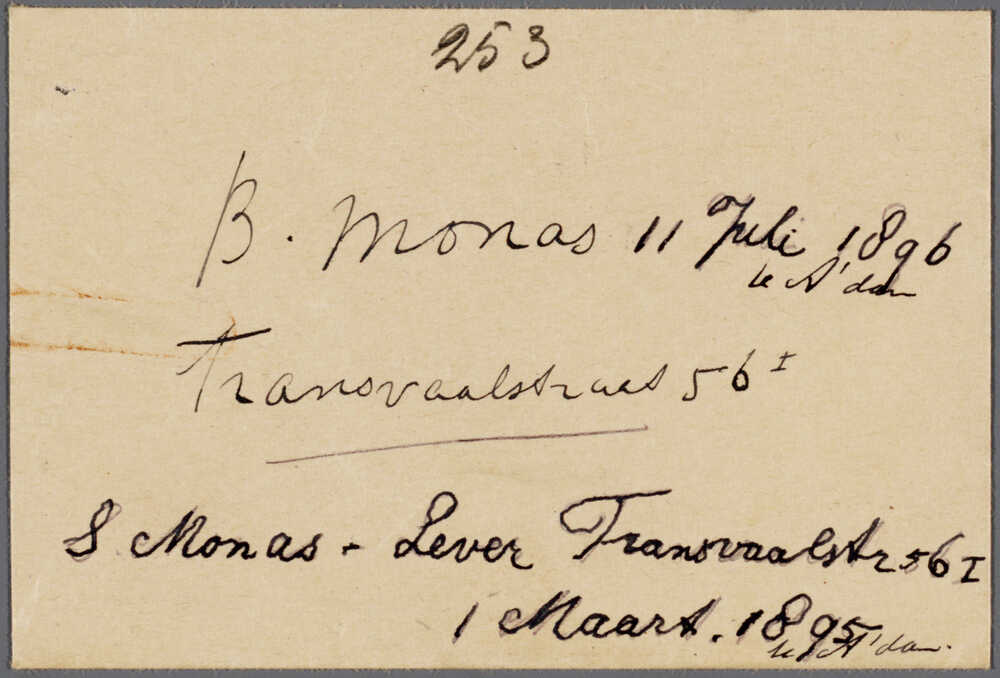 253
B. Monas 11 Juli 1896
te A'dam
Transvaalstraat 56 I
S Monas - Lever Transvaalstr 56 I
1 Maart. 1895
te A'dam.